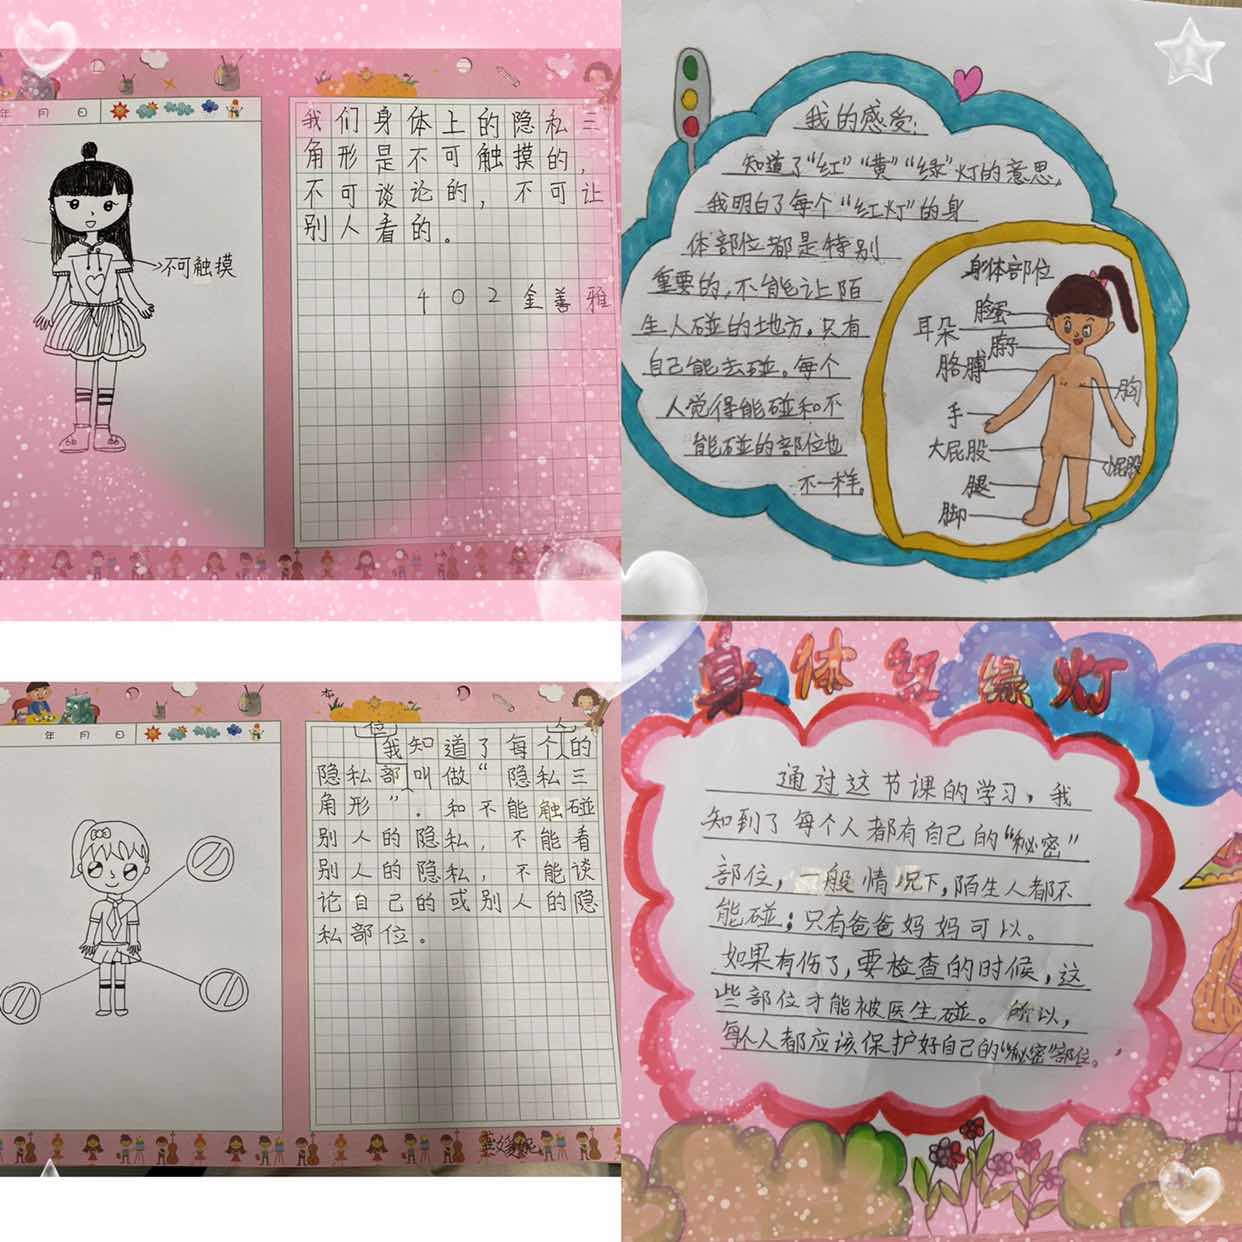 年 月 日
不可触摸
我们身体上的隐私三
角形是不可触摸的，
不可谈论的，不可让
别人看的。
402金善雅
我的感受：
知道了“红”“黄”“绿”灯的意思，
我明白了每个“红灯”的身
体部位都是特别
重要的，不能让陌
生人碰的地方，只有
自己能去碰。每个
人觉得能碰和不
能碰的部位也
不一样。
身体部位
脸蛋
耳朵
脖子
胳膊
胸
手
大屁股
屁股
腿
脚
年 月 日
我知道了每个人的
隐私部位叫做“隐私三
角形”．和不能触碰
别人的隐私，不能看
别人的隐私，不能谈
论自己的或别人的隐
私部位。
身体红绿灯
通过这节课的学习，我
知到了每个人都有自己的“秘密”
部位，一般情况下，陌生人都不
能碰；只有爸爸妈妈可以。
如果有伤了，要检查的时候，这
些部位才能被医生碰。所以，
每个人都应该保护好自己的“秘密”部位。